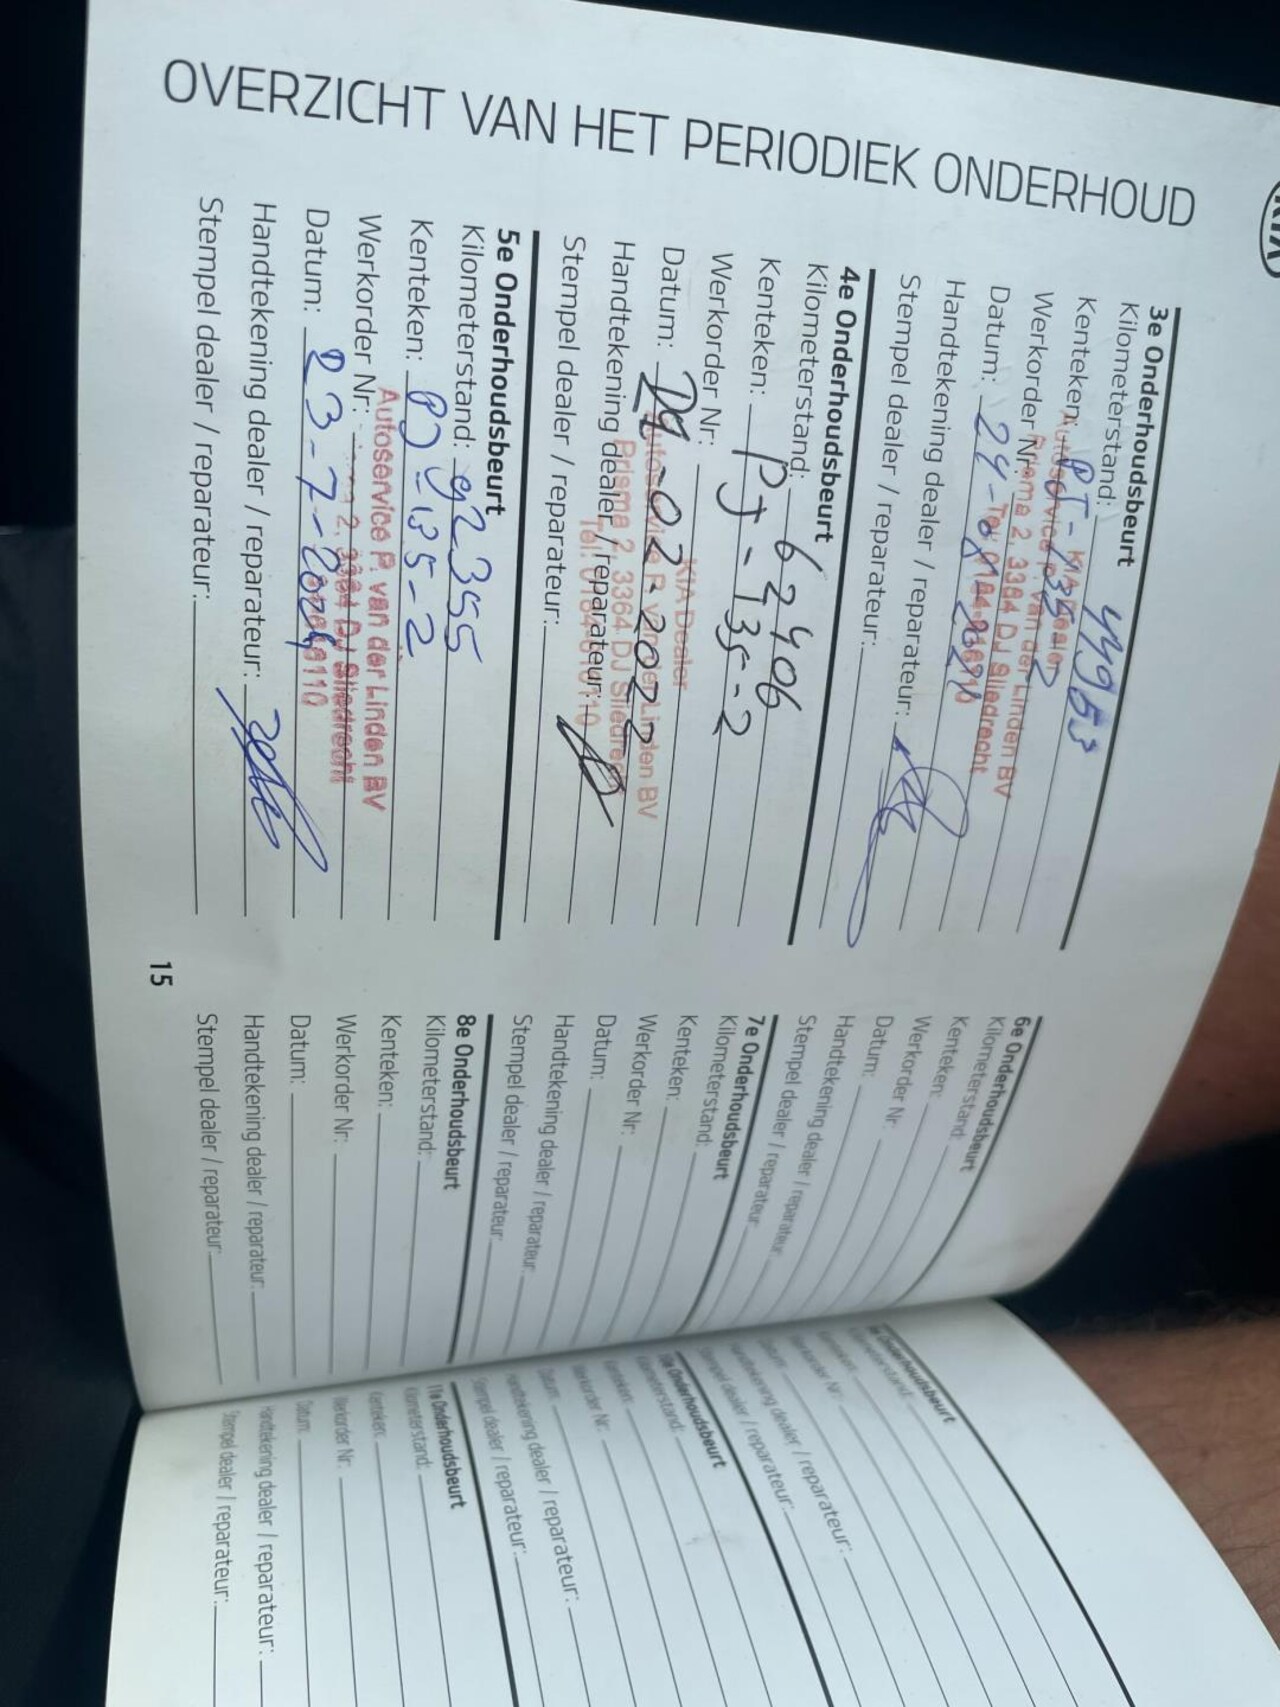 KIA
OVERZICHT VAN HET PERIODIEK ONDERHOUD
3e Onderhoudsbeurt
Kilometerstand: 44953
Kenteken: PT-135-2
Werkorder Nr:
Datum: 24-
Handtekening dealer / reparateur:
Stempel dealer / reparateur:
KIA Dealer
Autoservice P. van der Linden BV
Prisma 2, 3364 DJ Sliedrecht
4e Onderhoudsbeurt
Kilometerstand: 62406
Kenteken: PJ-135-2
Werkorder Nr:
Datum: -02-2022
Handtekening dealer / reparateur:
Stempel dealer / reparateur:
KIA Dealer
Autoservice P. van der Linden BV
Prisma 2, 3364 DJ Sliedrecht
5e Onderhoudsbeurt
Kilometerstand: 92355
Kenteken: 135-2
Werkorder Nr:
Datum: 23-7-2024
Handtekening dealer / reparateur:
Stempel dealer / reparateur:
Autoservice P. van der Linden BV
2, 3364 DJ Sliedrecht
15
6e Onderhoudsbeurt
Kilometerstand:
Kenteken:
Werkorder Nr:
Datum:
Handtekening dealer / reparateur:
Stempel dealer / reparateur:
7e Onderhoudsbeurt
Kilometerstand:
Kenteken:
Werkorder Nr:
Datum:
Handtekening dealer / reparateur:
Stempel dealer / reparateur:
8e Onderhoudsbeurt
Kilometerstand:
Kenteken:
Werkorder Nr:
Datum:
Handtekening dealer / reparateur:
Stempel dealer / reparateur:
Onderhoudsbeurt
Kilometerstand:
Kenteken:
Werkorder Nr:
Datum:
Handtekening dealer / reparateur:
Stempel dealer / reparateur:
10e Onderhoudsbeurt
Kilometerstand:
Kenteken:
Werkorder Nr:
Datum:
Handtekening dealer / reparateur:
Stempel dealer / reparateur:
11e Onderhoudsbeurt
Kilometerstand:
Kenteken:
Werkorder Nr:
Datum:
Handtekening dealer / reparateur:
Stempel dealer / reparateur: